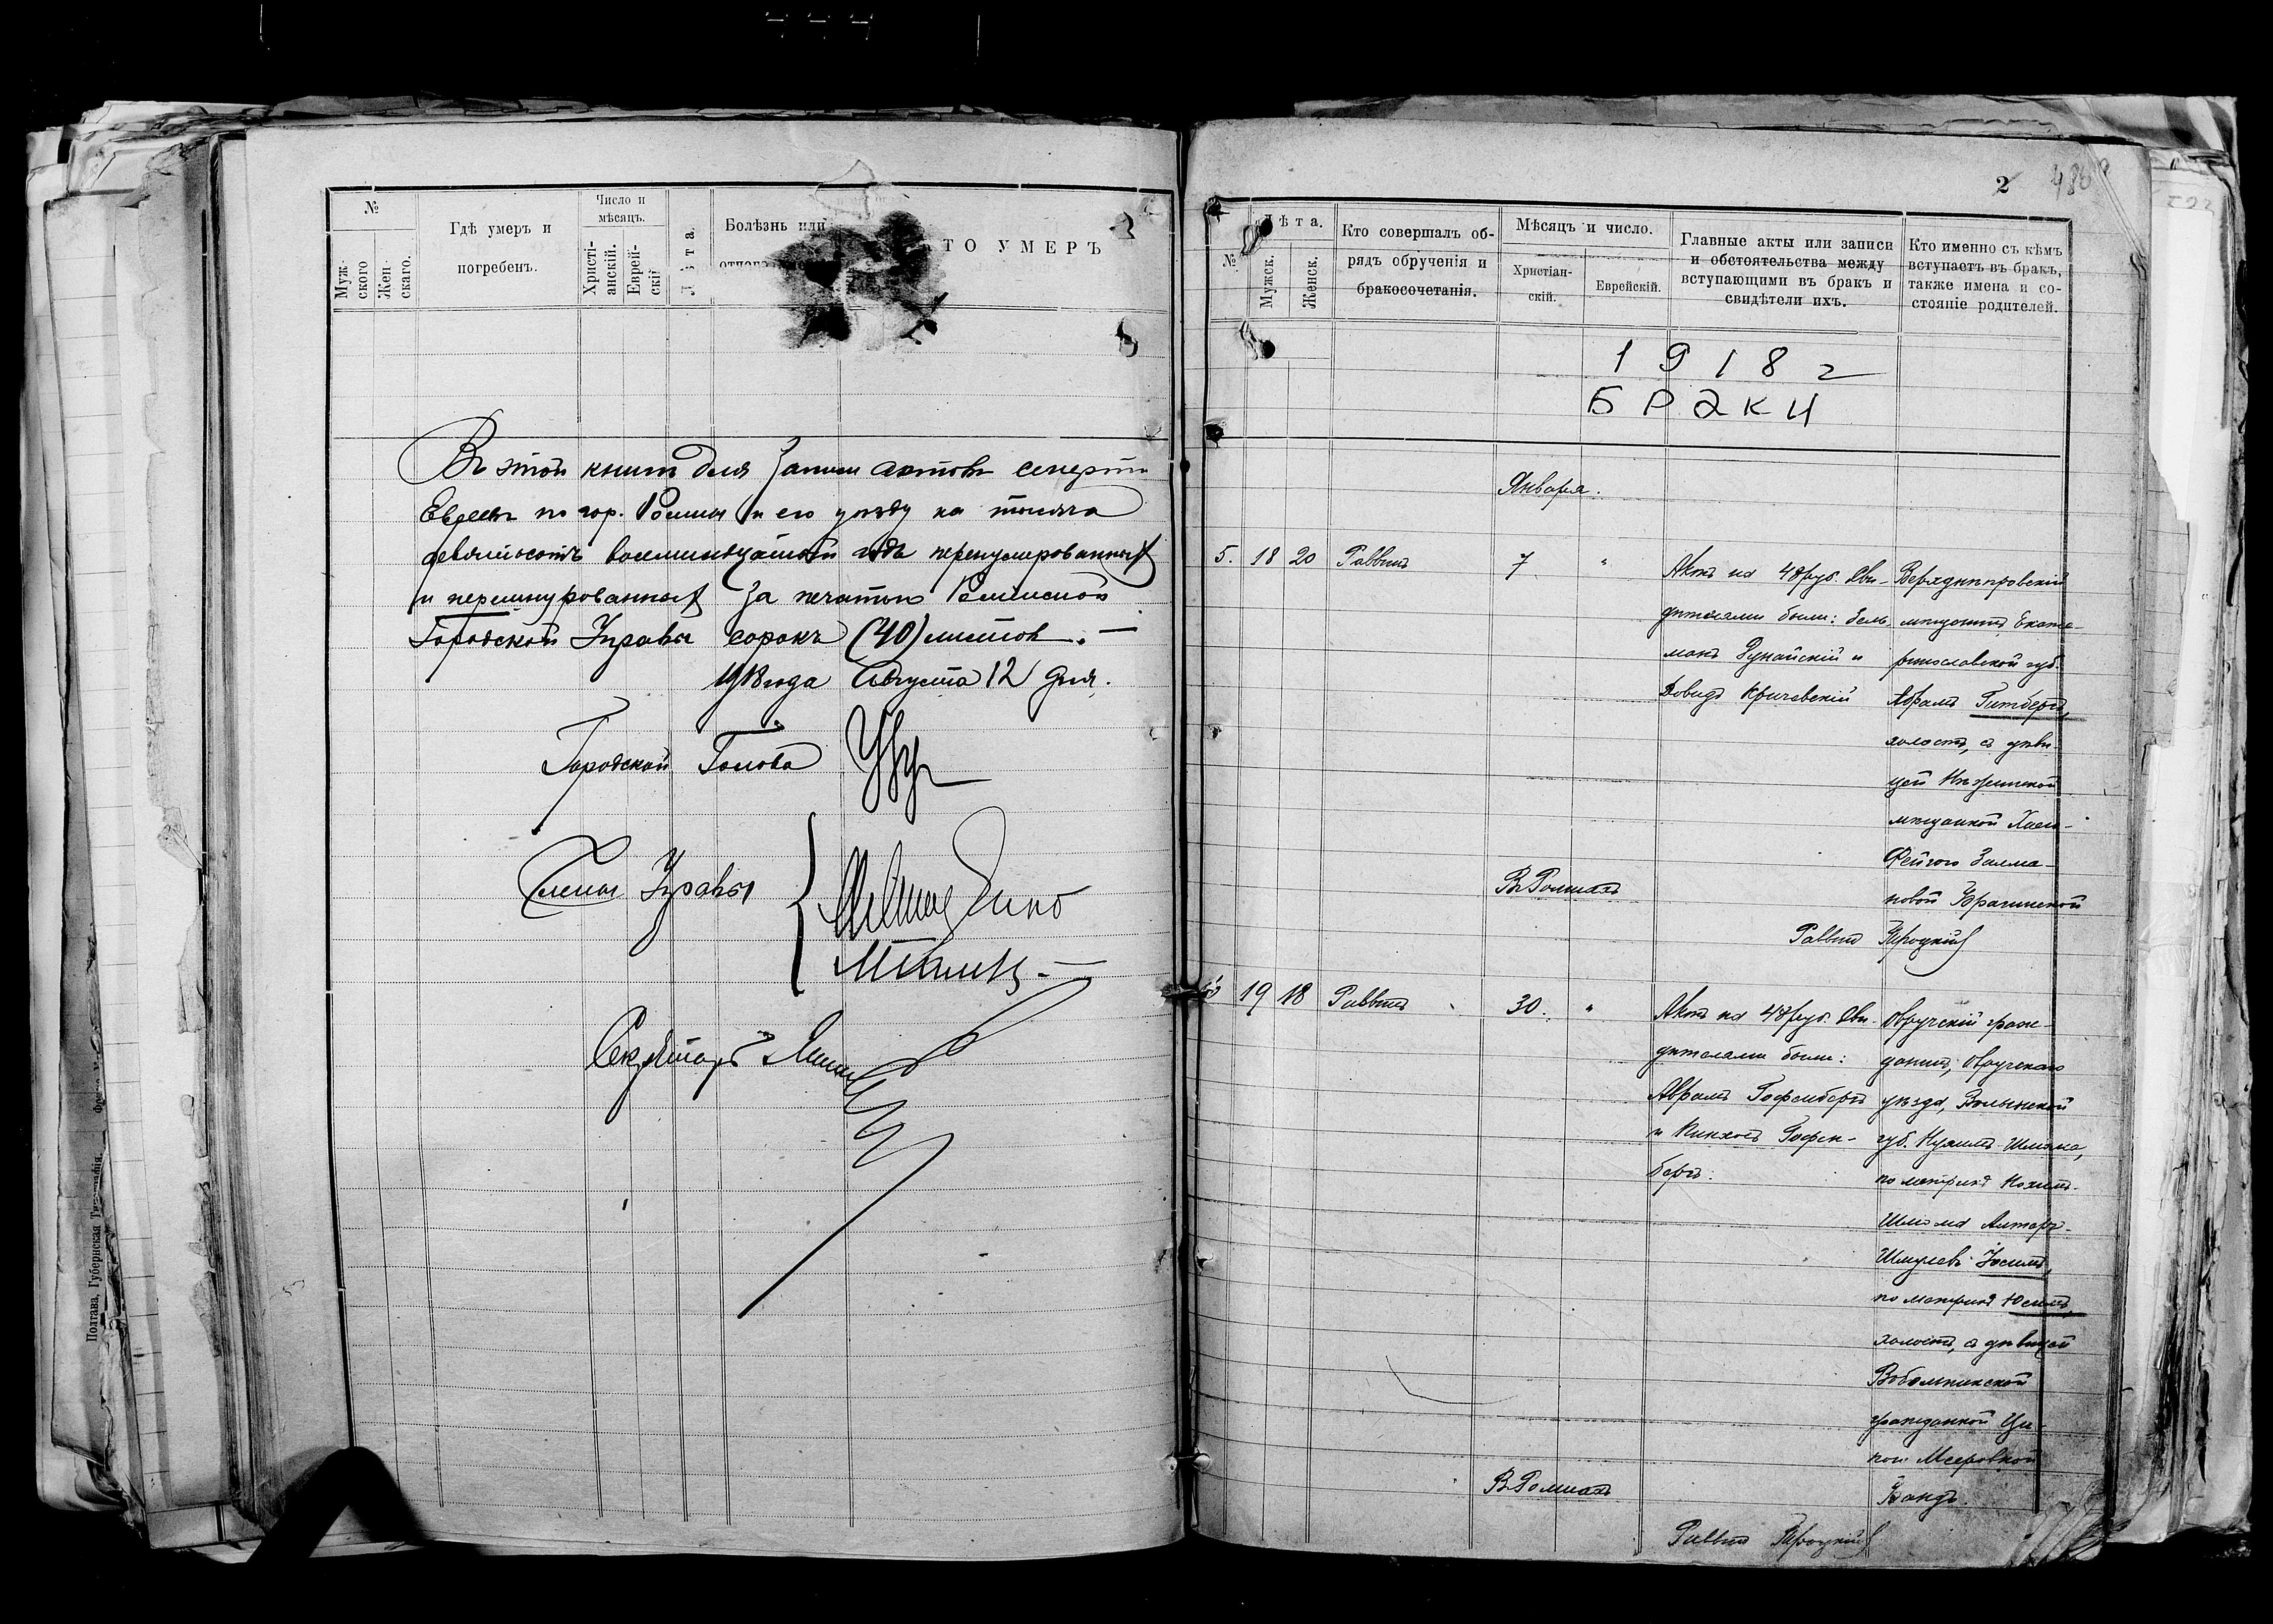 №
Муж-
ского
Жен-
скаго.
Гдѣ умеръ и
погребенъ.
Число и
мѣсяцъ.
Христі-
анскій.
Еврей-
скій
Болѣзнь или
ТО УМЕРЪ
Въ этой книгѣ для записи актовъ смерти
Евреевъ по гор. Ромны и его уѣзду на тысяча
девятьсотъ восемнадцатый годъ перенумерованныхъ
и перешнурованныхъ за печатью Роменской
Городской Управы сорокъ (40) листов. —
1918 года Августа 12 дня.
Городской Голова
Члены Управы
Секретарь
Полтава, Губернская Типографія.
2
486
№
Лѣта.
Мужск.
Женск.
Кто совершалъ об-
рядъ обрученія и
бракосочетанія.
Мѣсяцъ и число.
Христіан-
скій.
Еврейскій.
Главные акты или записи
и обстоятельства между
вступающими въ бракъ и
свидѣтели ихъ.
Кто именно съ кѣмъ
вступаетъ въ бракъ,
также имена и со-
стояніе родителей.
1918 г
БРАКИ
Января.
5. 18 20 Раввинъ 7 "
Актъ на 48 руб. Сви-
дѣтелями были: Зель-
манъ Дунайскій и
Довидъ Кричевскій
Верхднѣпровскій
мѣщанинъ, Екате-
ринославской губ.
Абрамъ Гитбергъ,
холостъ, съ дѣви-
цей Нѣжинской
мѣщанкой Хаей-
Фейгою Залма-
новой Брагинской
Въ Ромнахъ
Раввинъ Троцкій
6 19 18 Раввинъ 30. "
Актъ на 48 руб. Сви-
дѣтелями были:
Абрамъ Гофенбергъ
и Пинхосъ Гофен-
бергъ.
Овручскій граж-
данинъ, Овручскаго
уѣзда, Волынской
губ. Нухимъ-Шлома,
по метрикѣ Нохимъ-
Шлома Алтеръ-
Шмулевъ Іосимъ,
по метрикѣ Юсимъ,
холостъ, съ дѣвицей
гражданкой Ци-
пой Мееровной
Бандъ.
Въ Ромнахъ
Раввинъ Троцкій